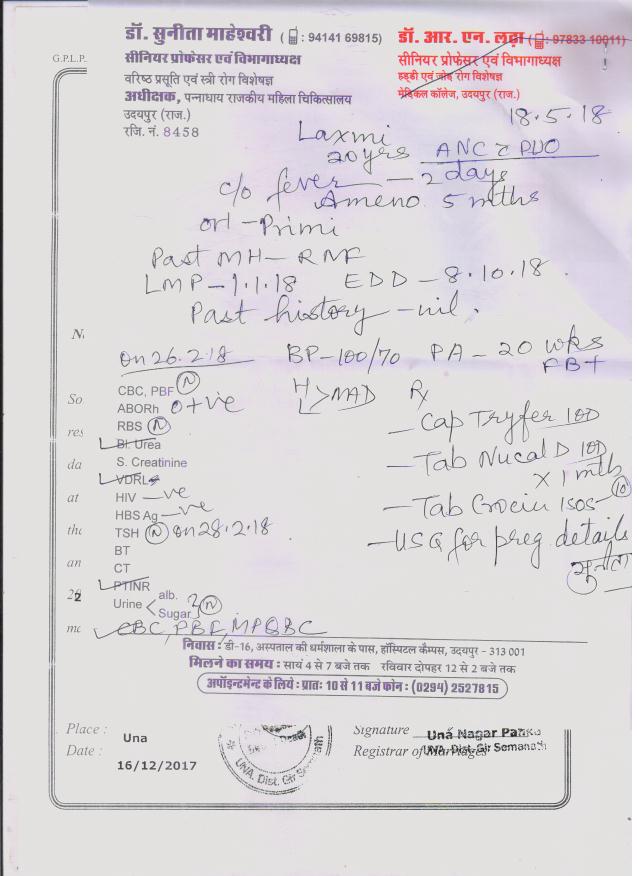 डॉ. सुनीता माहेश्वरी ( : 94141 69815)
सीनियर प्रोफेसर एवं विभागाध्यक्ष
वरिष्ठ प्रसूति एवं स्त्री रोग विशेषज्ञ
अधीक्षक, पन्नाधाय राजकीय महिला चिकित्सालय
उदयपुर (राज.)
रजि. नं. 8458
डॉ. आर. एन. लढ़ा ( : 97833 10011)
सीनियर प्रोफेसर एवं विभागाध्यक्ष
हड्डी एवं जोड़ रोग विशेषज्ञ
मेडिकल कॉलेज, उदयपुर (राज.)
G.P.L.P.
18.5.18
Laxmi
20yrs ANC c PUO
c/o fever — 2 days
Ameno 5 mths
OH - Primi
Past MH - RNF
LMP - 1.1.18 EDD - 8.10.18.
Past history - nil.
On 26.2.18 BP - 100/70 PA - 20 wks
FB+
CBC, PBF N
ABORh O+ve
RBS N
Bl. Urea
S. Creatinine
VDRL
HIV -ve
HBS Ag -ve
TSH N on 28.2.18
BT
CT
PTINR
Urine alb.
Sugar N
CBC, PBF, MPQBC
H > NAD
Rx
- Cap Tryfer 10D
- Tab Nucal D 10D
x 1 mth
- Tab Crocin 1SOS - 10
- USG for preg. details
सुनीता
N.
So
res
da
at
the
an
2
mc
निवास : डी-16, अस्पताल की धर्मशाला के पास, हॉस्पिटल कैम्पस, उदयपुर - 313 001
मिलने का समय : सायं 4 से 7 बजे तक रविवार दोपहर 12 से 2 बजे तक
अपॉइन्टमेन्ट के लिये : प्रातः 10 से 11 बजे फोन : (0294) 2527815
Place : Una
Date : 16/12/2017
UNA. Dist. Gir Somnath
Signature Una Nagar
Registrar of Marriages UNA. Dist. Gir Somanath